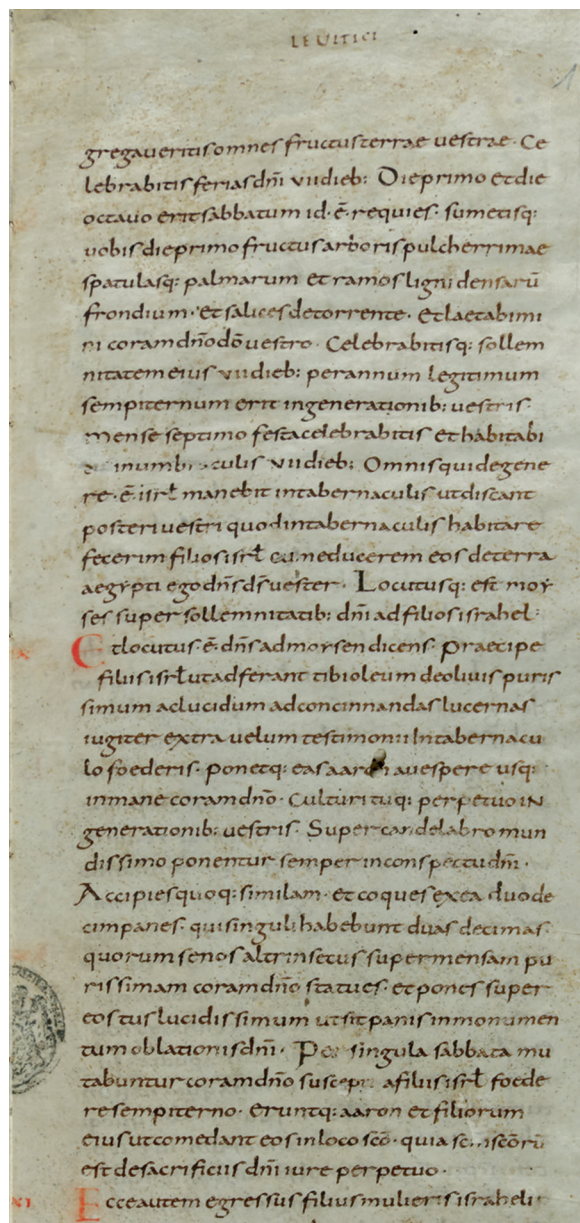 LEVITICI
gregaueritis omnes fructus terrae uestrae · Ce
lebrabitis ferias dn̄i uii dieb: Die primo et die
octauo erit sabbatum id · ē · requies · sumetisq:
uobis die primo fructus arboris pulcherrimae
spatulasq: palmarum et ramos ligni densarū
frondium · et salices de torrente · Et laetabimi
ni coram dn̄o dō uestro · Celebrabitisq: sollem
nitatem eius uii dieb: per annum legitimum
sempiternum erit in generationib: uestris ·
mense septimo festa celebrabitis et habitabi
in umbraculis uii dieb: Omnis qui de gene
re · ē · isrƚ manebit in tabernaculis ut discant
posteri uestri quod in tabernaculis habitare
fecerim filios isrƚ cum educerem eos de terra
aegypti ego dn̄s ds̄ uester · Locutusq: est moy
ses super sollemnitatib: dn̄i ad filios israhel :
x Et locutus · ē · dn̄s ad moysen dicens · Praecipe
filiis isrƚ ut adferant tibi oleum de oliuis puris
simum ac lucidum ad concinnandas lucernas
iugiter extra uelum testimonii In tabernacu
lo foederis · Ponetq: eas aaron a uespere usq:
in mane coram dn̄o · Cultu rituq: perpetuo IN
generationib: uestris · Super candelabro mun
dissimo ponentur semper in conspectu dn̄i ·
Accipies quoq: similam · et coques ex ea duode
cim panes · qui singuli habebunt duas decimas ·
quorum senos altrinsecus super mensam pu
rissimam coram dn̄o statues · et pones super
eos tus lucidissimum ut sit panis in monumen
tum oblationis dn̄i · Per singula sabbata mu
tabuntur coram dn̄o suscepti a filiis isrƚ foede
re sempiterno · Eruntq: aaron et filiorum
eius ut comedant eos in loco scō · quia scō scōrū
est de sacrificiis dn̄i iure perpetuo ·
xi Ecce autem egressus filius mulieris israheli